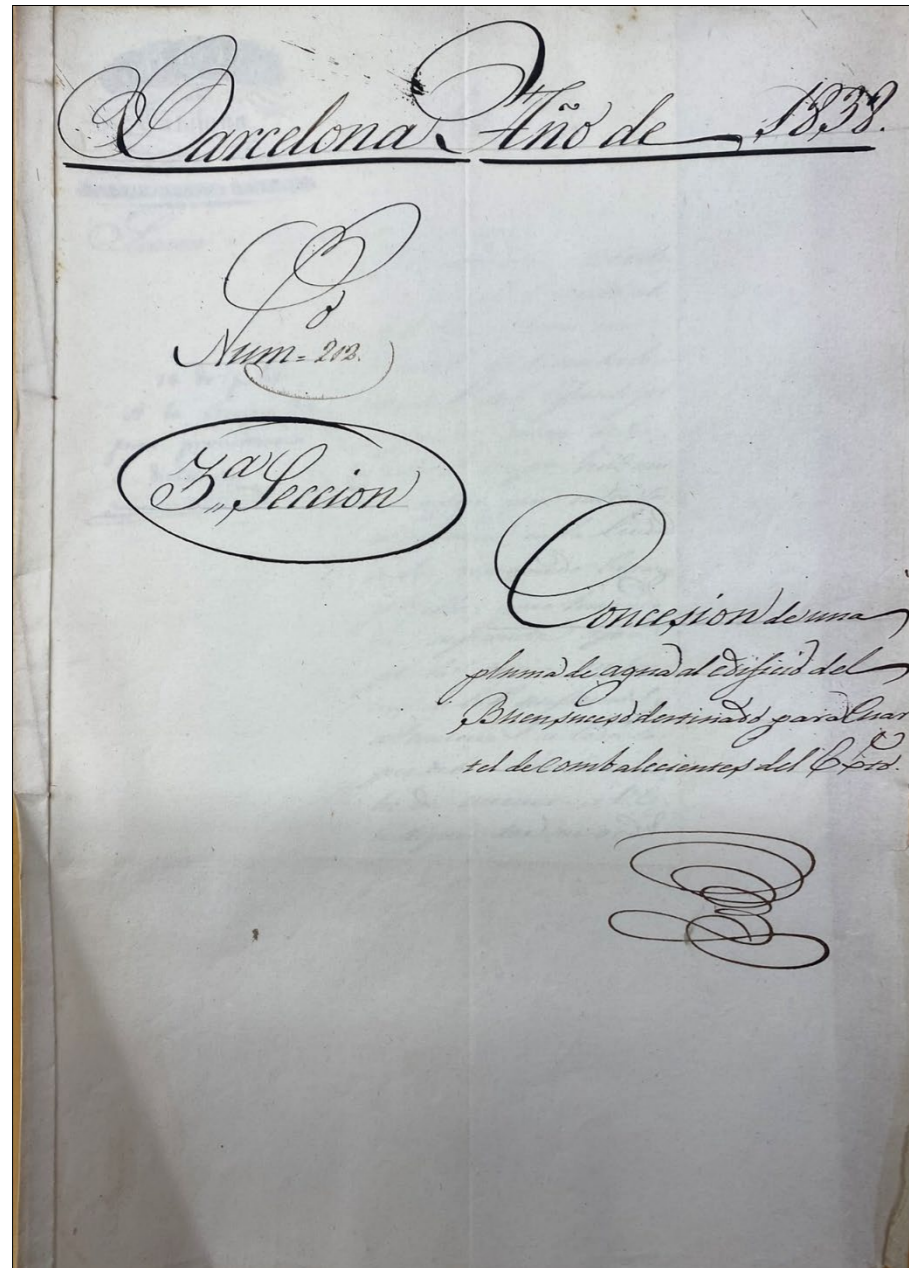 Barcelona Año de 1838.
Num = 212.
3.ª Seccion
Concesion de una
pluma de agua al edificio del
Buensuceso destinado para Cuar
tel de combalecientes del Exto.